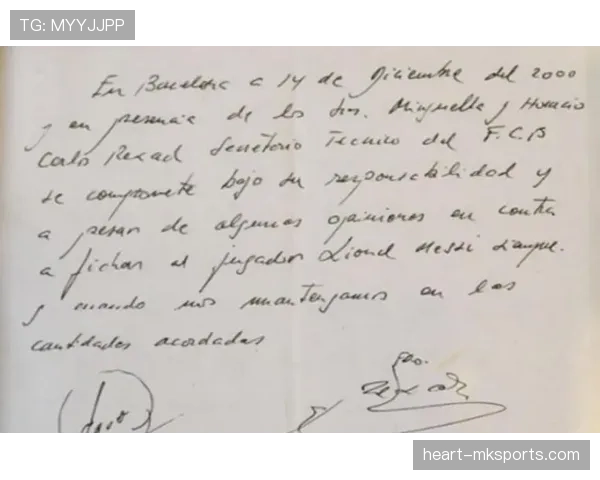 TG: MYYJJPP
En Barcelona a 14 de Diciembre del 2000
y en presencia de los Srs. Minguella y Horacio
Carlos Rexach Secretario Técnico del F.C.B
se compromete bajo su responsabilidad y
a pesar de algunas opiniones en contra
a fichar al jugador Lionel Messi siempre
y cuando nos mantengamos en las
cantidades acordadas
heart-mksports.com